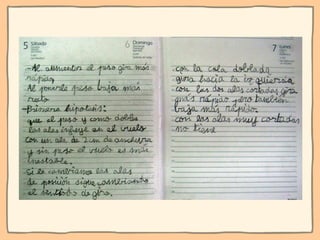 5 Sábado
6 Domingo
-Al aumentar el peso gira más
rápido.
Al ponerle peso baja más
recto
-Primera hipotesis:
que el peso y como doble
las alas influye en el vuelo
Con un ala de 2 cm de anchura
y sin peso el vuelo es más
inestable.
Si le cambiamos las alas
de posición sigue cambiando
el sentido de giro.
7 Lunes
-con la cola doblada
gira hacia la izquierda
-con las dos alas cortadas gira
más rápido pero también
baja más rápido
-con las alas muy cortadas
no tiene